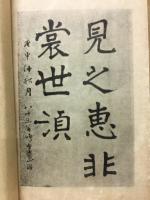 見之惠非
裳世湏
庚申仲秋月